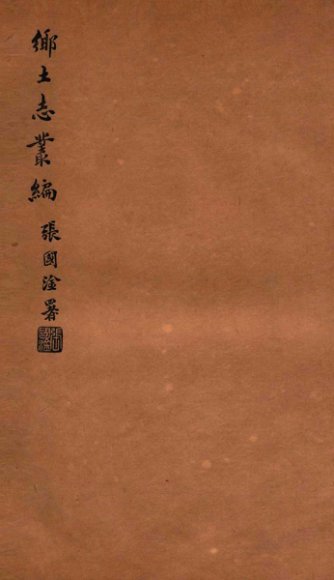 鄉土志叢編 張國淦署